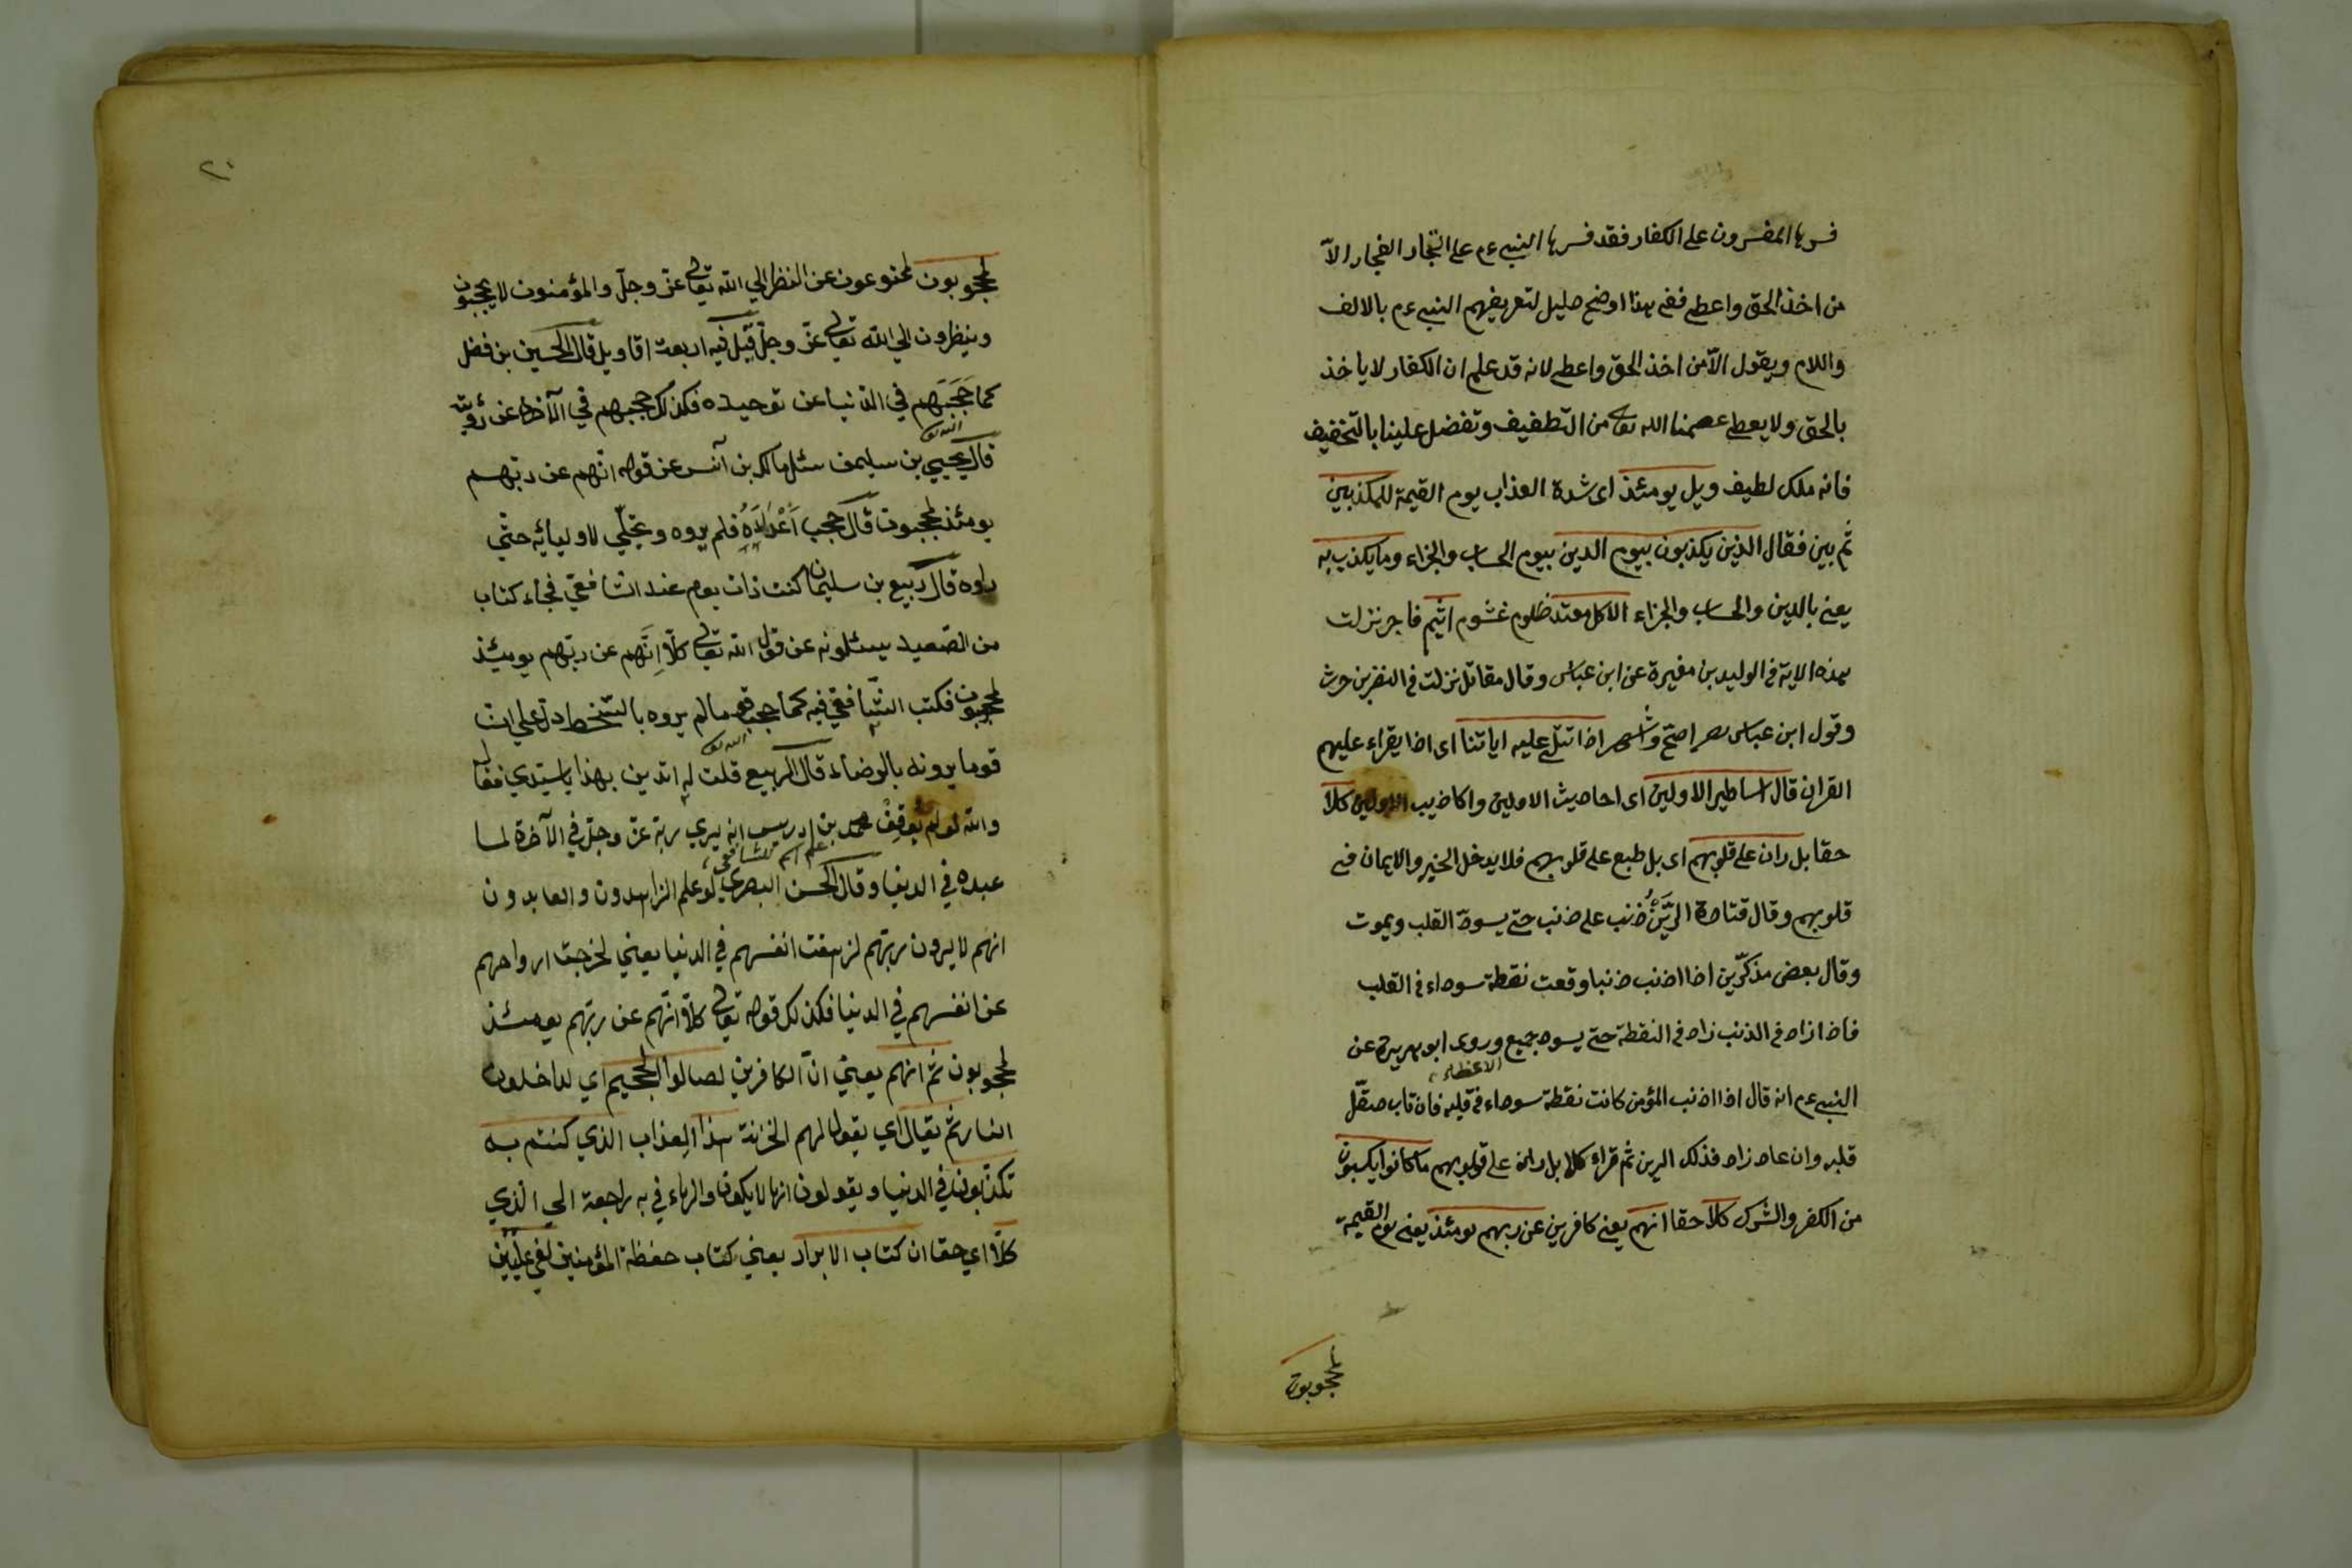 فسرها المفسرون على الكفار فقد فسرها النبي عم على التجار الفجار الاّ
من اخذ الحق واعطى ففي هذا اوضح دليل لتعريفهم النبي عم بالالف
واللام ويقول الاّ من اخذ الحق واعطى لانه قد علم ان الكفار لا ياخذ
بالحق ولا يعطى عصمنا الله تعا من التطفيف وتفضل علينا بالتخفيف
فانه ملك لطيف ويل يومئذ اى شدة العذاب يوم القيمة للمكذبين
ثم بين فقال الذين يكذبون بيوم الدين بيوم الحساب والجزاء وما يكذب به
يعنى بالدين والحساب والجزاء الا كل معتد ظلوم غشوم اثيم فاجر نزلت
هذه الاية فى الوليد بن مغيرة عن ابن عباس وقال مقاتل نزلت فى النضر بن حرث
وقول ابن عباس اصحّ واشهر اذا تتلى عليه اياتنا اى اذا يقراء عليهم
القران قال اساطير الاولين اى احاديث الاولين واكاذيب الاولين كلاّ
حقا بل ران على قلوبهم اى بل طبع على قلوبهم فلا يدخل الخير والايمان فى
قلوبهم وقال قتادة الرَّيْنُ ذنب على ذنب حتى يسودّ القلب ويموت
وقال بعض مذكّرين اذا اذنب ذنبا وقعت نقطة سوداء فى القلب
فاذا زاد فى الذنب زاد فى النقطة حتى يسود جميع وروى ابو هريرة عن
الاعظاء
النبى عم انه قال اذا اذنب المؤمن كانت نقطة سوداء فى قلبه فان تاب صقّل
قلبه وان عاد زاد فذلك الرين ثم قراء كلا بل ران على قولوبهم ما كانوا يكسبون
من الكفر والشرك كلاّ حقا انهم يعنى كافرين عن ربهم يومئذ يعنى يوم القيمة
لمحجوبون
٢٠
لمحجوبون لممنوعون عن النظر الي الله تعالى عزّ وجلّ والمؤمنون لا يحجبون
وينظرون الي الله تعالى عزّ وجلّ قيل فيه اربعة اقاويل قال الحسين بن فضل
كما حَجَبَهم في الدنيا عن توحيده فكذلك حجبهم في الآخرة عن رؤيته
قال يحيي بن سليمن سئل مالك بن آنس عن قوله انّهم عن ربّهم
يومئذ لمحجبون قال حجب اَعْدَاءَهُ فلم يروه وتجلّي لاوليائه حتّي
راوه قال ربيع بن سليمان كنت ذات يوم عند الشافعي فجاء كتاب
من الصّعيد يسئلونه عن قول الله تعالى كلاّ اِنَّهم عن ربّهم يومئذ
لمحجوبون فكتب الشّافعي فيه كما حجب قوما لم يروه بالسّخط دلّ علي ان
قوما يرونه بالرضاء قال الربيع قلت له اتدين بهذا يا سيّدي فقال
والله لو لم يُوقِنْ محمد بن ادريس انه يري ربّه عزّ وجلّ في الآخرة لما
عبده في الدنيا وقال الحسن البصري لو علم الزاهدون والعابدون
انهم لا يرون ربّهم لزهقت انفسهم في الدنيا يعني لخرجت ارواحهم
عن انفسهم في الدنيا فكذلك قوله تعالى كلاّ انّهم عن ربّهم يومئذ
لمحجوبون ثمّ انهم يعني انّ الكافرين لصالوا الجحيم اي لداخلون
النار ثمّ يقال اي يقول لهم الخزنة هذا العذاب الذي كنتم به
تكذّبون في الدنيا ويقولون انها لا يكون والهاء في به راجعة الي الّذي
كلاّ اي حقا ان كتاب الابرار يعني كتاب حفظة المؤمنين لفي علّيّين